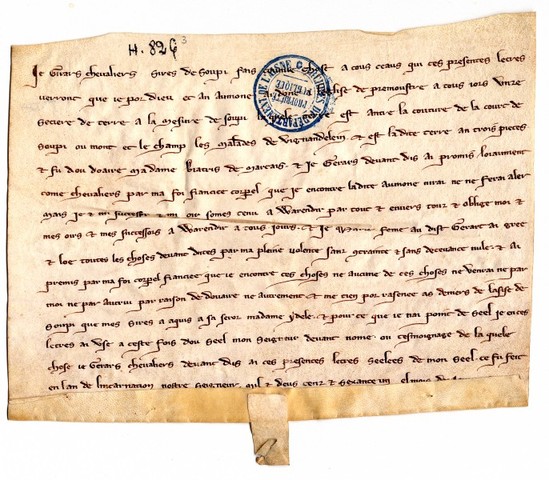 H. 826 3
Je Gerars chevaliers sires de Soupi fais a tous ceaus qui ces presentes letres
verront que ie por dieu et an aumone ai done a de premoustre a tous iors unze
de terre a la mesure de Soupi est antre la couture de la court de
Soupi ou mont et le champ les malades de et est ladite terre an trois pieces
& fu dou doaire madame Biatris de & Je Gerars devant dis ai promis loiaument
come chevaliers par ma foi fiancie corpel que je encontre ladite aumone nirai ne ne ferai aler
mais je & mi successor & mi oir somes tenu a warendir par tout & envers tous & oblige moi &
mes oirs & mes successors a warendir a tous iours. & Je feme au dist Gerart ai gree
& loe toutes les choses devant dites par ma pleine volente sanz & sans decevance nule & ai
promis par ma foi corpel fianciee que ie encontre ces choses ne aucune de ces choses ne venrai ne par
moi ne par autrui par raison de douaire ne autrement & me tien por as deniers de
Soupi que mes sires a aquis a sa seror madame Ydele & pour ce que ie nai point de seel je en ces
letres ai use a ceste fois dou seel mon seigneur devant nome ou tesmoignage de la quele
chose ie Gerars chevaliers devant dis ai ces presentes letres seelees de mon seel ce fu fait
en lan de lincarnation nostre seigneur mil & deus cenz & sexante el mois de